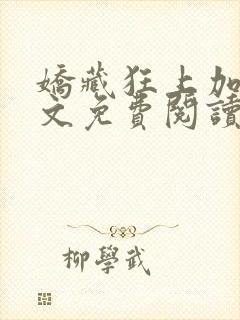 嬌藏狂上加
文免費閱讀
柳學武